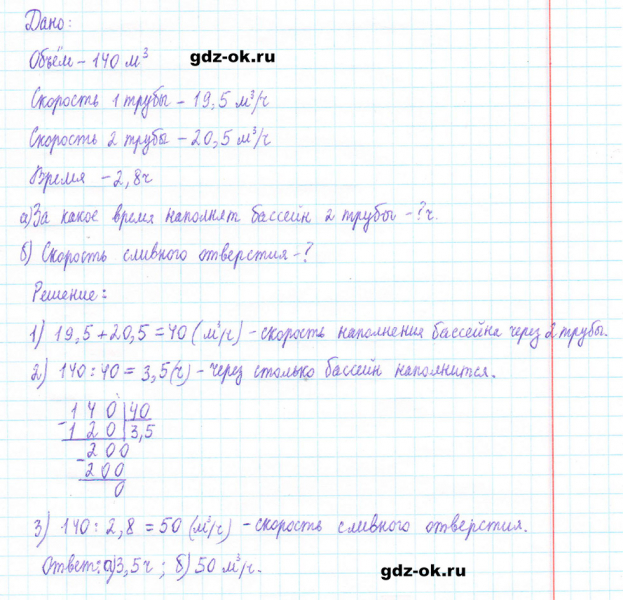 Дано:
Объём - 140 м³ gdz-ok.ru
Скорость 1 трубы - 19,5 м³/ч
Скорость 2 трубы - 20,5 м³/ч
Время - 2,8ч
а) За какое время наполнят бассейн 2 трубы - ? ч.
б) Скорость сливного отверстия - ?
Решение:
1) 19,5 + 20,5 = 40 (м³/ч) - скорость наполнения бассейна через 2 трубы.
2) 140 : 40 = 3,5 (ч) - через столько бассейн наполнится.
140 | 40
- 120 | 3,5
200
- 200
0
3) 140 : 2,8 = 50 (м³/ч) - скорость сливного отверстия.
Ответ: а) 3,5 ч ; б) 50 м³/ч.
gdz-ok.ru